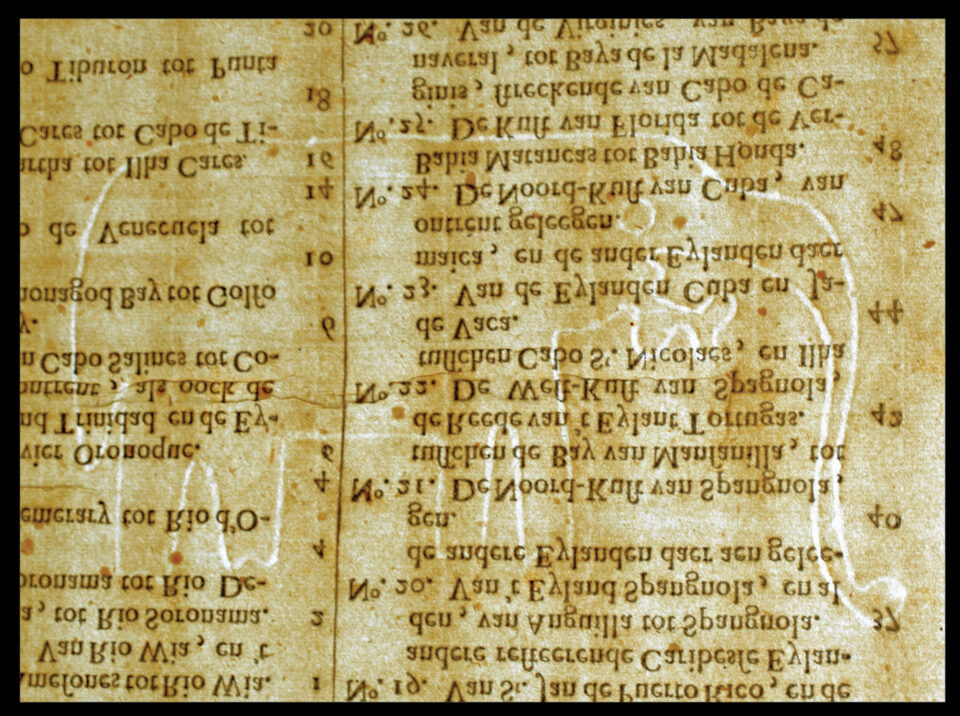 ameſones tot Rio Wia. 1
Van Rio Wia, en 't
a, tot Rio Soronama. 2
oronama tot Rio De-
4
emerary tot Rio d'O-
4
vier Oronoque. 6
nd Trinidad en de Ey-
ontrent, als oock de
n Cabo Salines tot Co-
y. 6
onagod Bay tot Golfo
10
o de Venecuela tot
14
artha tot Ilha Cares. 16
Cares tot Cabo de Ti-
18
o Tiburon tot Punta
20
Nº. 19. Van St. Jan de Puerto Rico, en de
andere reſteerende Caribeſſe Eylan-
den, van Anguilla tot Spangnola. 37
Nº. 20. Van 't Eyland Spangnola, en al
de andere Eylanden daer aen gelee-
gen. 40
Nº. 21. De Noord-Kuſt van Spangnola,
tuſſchen de Bay van Manſanilla, tot
de Reede van 't Eylant Tortugas. 42
Nº. 22. De Weſt-Kuſt van Spagnola,
tuſſchen Cabo St. Nicolaes, en Ilha
de Vaca. 44
Nº. 23. Van de Eylanden Cuba en Ja-
maica, en de ander Eylanden daer
ontrent geleegen. 47
Nº. 24. De Noord-Kuſt van Cuba, van
Bahia Matancas tot Bahia Honda. 48
Nº. 25. De Kuſt van Florida tot de Ver-
ginis, ſtreckende van Cabo de Ca-
naveral, tot Baya de la Madalena. 57
Nº. 26. Van de Virginies, van Baya de